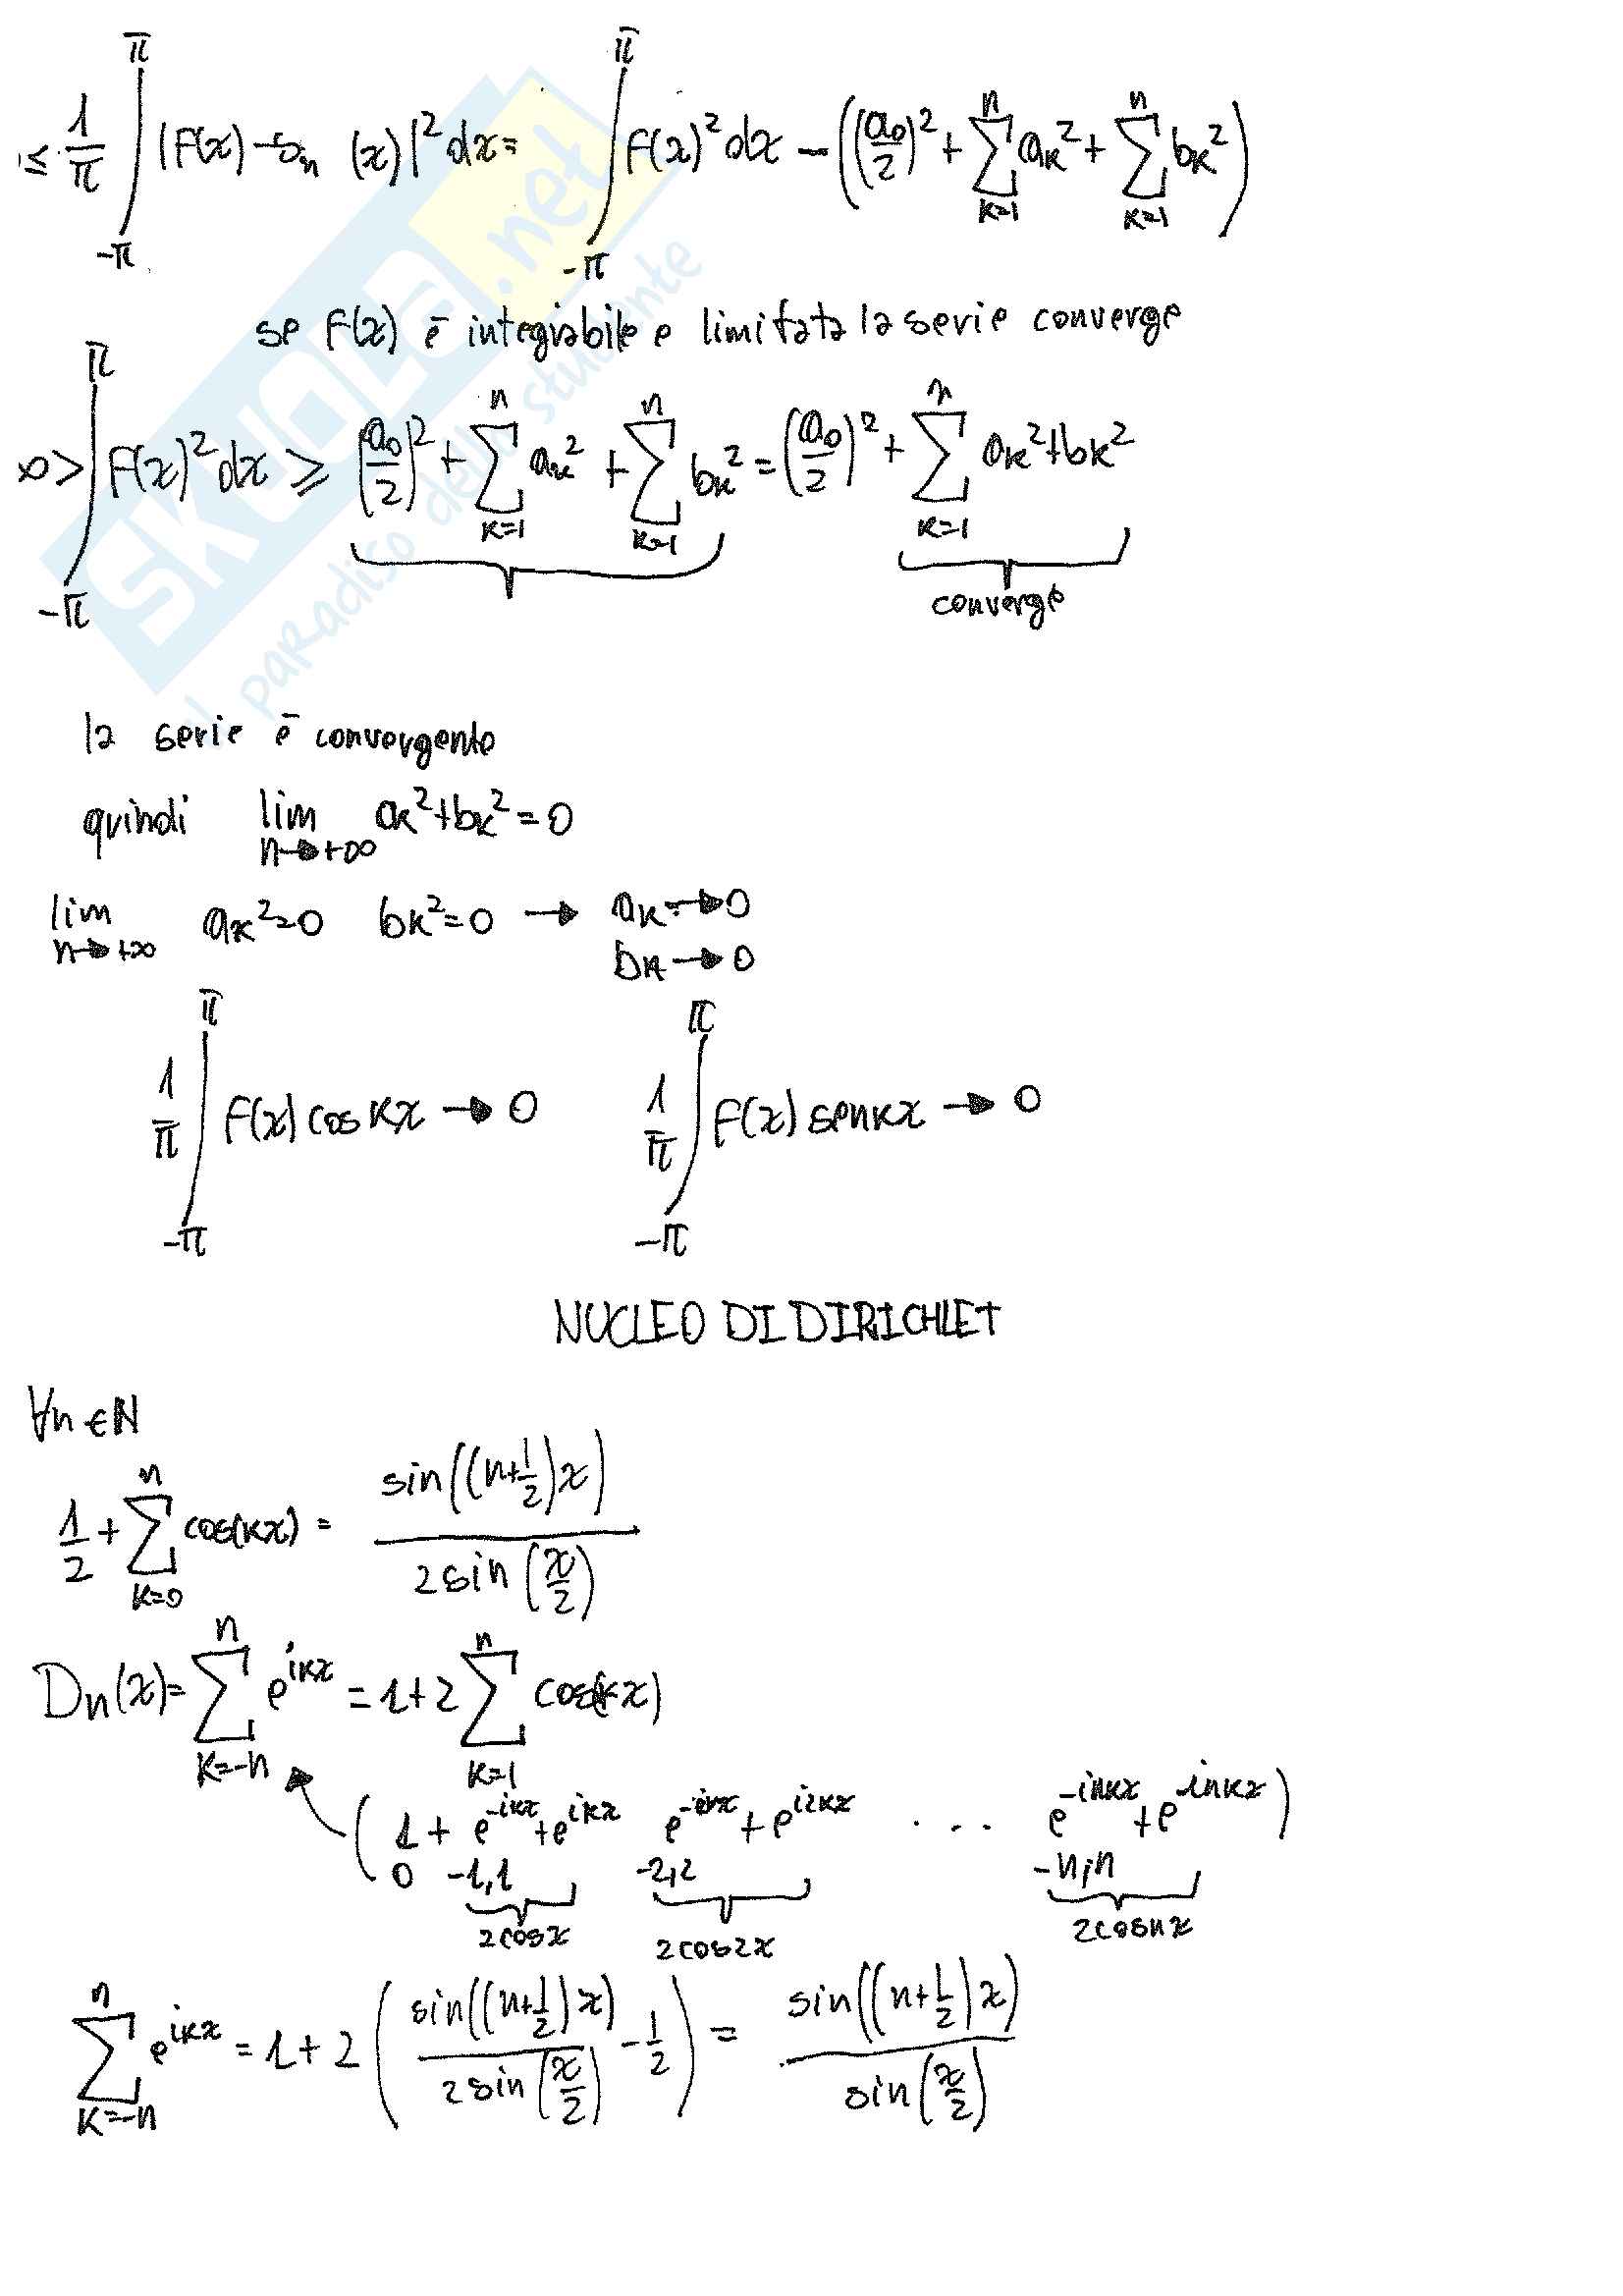 ≤ 1/π ∫_{-π}^{π} |F(x) - s_n (x)|² dx = ∫_{-π}^{π} F(x)² dx - ((a₀/2)² + Σ_{k=1}^{n} a_k² + Σ_{k=1}^{n} b_k²)
se F(x) è integrabile e limitata la serie converge
∞ > ∫_{-π}^{π} F(x)² dx ≥ (a₀/2)² + Σ_{k=1}^{n} a_k² + Σ_{k=1}^{n} b_k² = (a₀/2)² + Σ_{k=1}^{n} a_k² + b_k²
converge
la serie è convergente
quindi lim_{n→+∞} a_k² + b_k² = 0
lim_{n→+∞} a_k² = 0 b_k² = 0 → a_k → 0
b_k → 0
1/π ∫_{-π}^{π} F(x) cos kx → 0 1/π ∫_{-π}^{π} F(x) sen kx → 0
NUCLEO DI DIRICHLET
∀n ∈ ℕ
1/2 + Σ_{k=0}^{n} cos(kx) = sin((n+1/2)x) / 2 sin(x/2)
Dn(x) = Σ_{k=-n}^{n} e^{ikx} = 1 + 2 Σ_{k=1}^{n} cos(kx)
(1 + e^{-ikx} + e^{ikx} + e^{i2kx} . . . e^{-inkx} + e^{inkx})
0 -1,1 -2,2 -n,n
2cosx 2cos2x 2cosnx
Σ_{k=-n}^{n} e^{ikx} = 1 + 2 (sin((n+1/2)x) / 2 sin(x/2) - 1/2) = sin((n+1/2)x) / sin(x/2)
SKUOLA.net
il paradiso dello studente